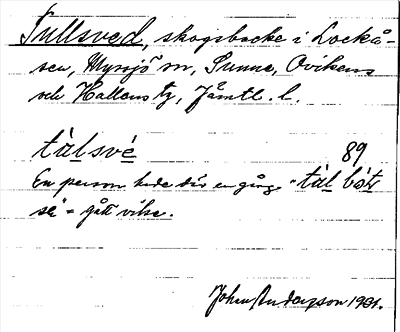 Tullsved, skogsbacke i Lockå-
sen, Myssjö sn, Sunne, Ovikens
och Hallens tg, Jämtl. l.
tàlsvé 89
En person hade där en gång "tàl bótt
sé" = gått vilse.
John Andersson 1901.